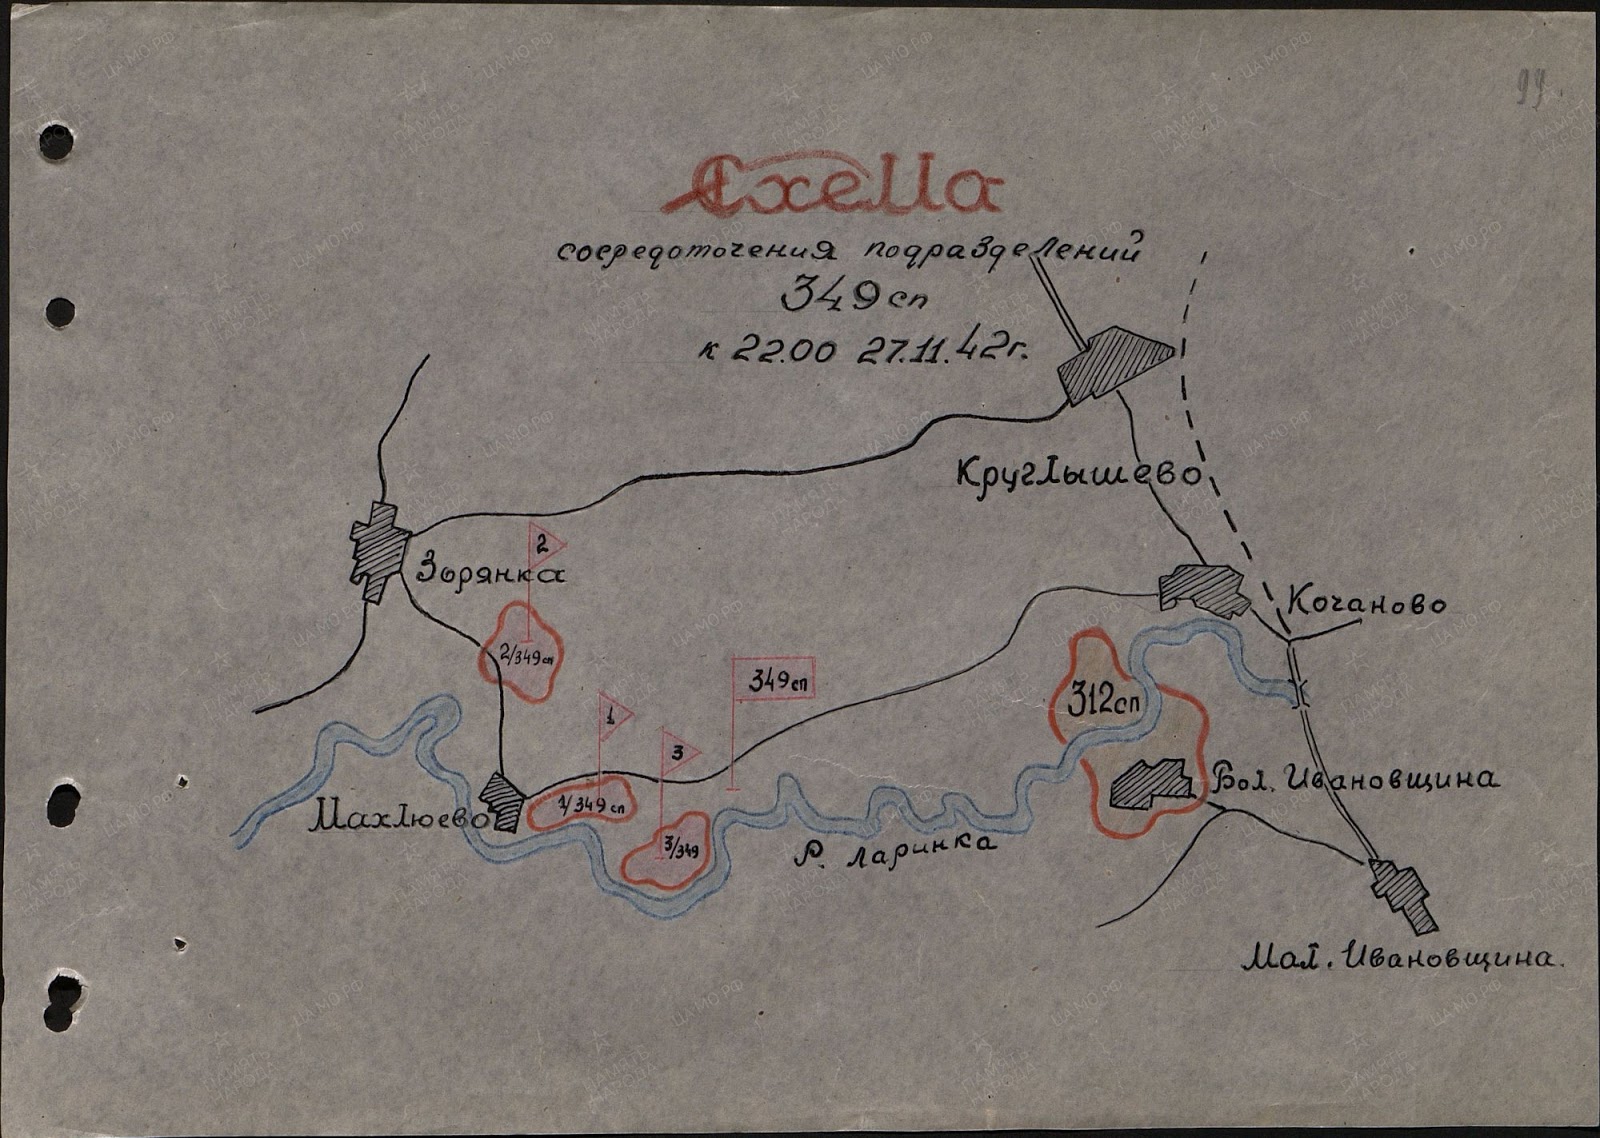 99.
Схема
сосредоточения подразделений
349 сп
к 22.00 27.11.42г.
Круглышево
2
Зорянка
Кочаново
2/349 сп
349 сп
312 сп
1
3
Бол. Ивановщина
1/349 сп
Махлюево
3/349
Р. Ларинка
Мал. Ивановщина.
ПАМЯТЬ НАРОДА
ЦАМО.РФ